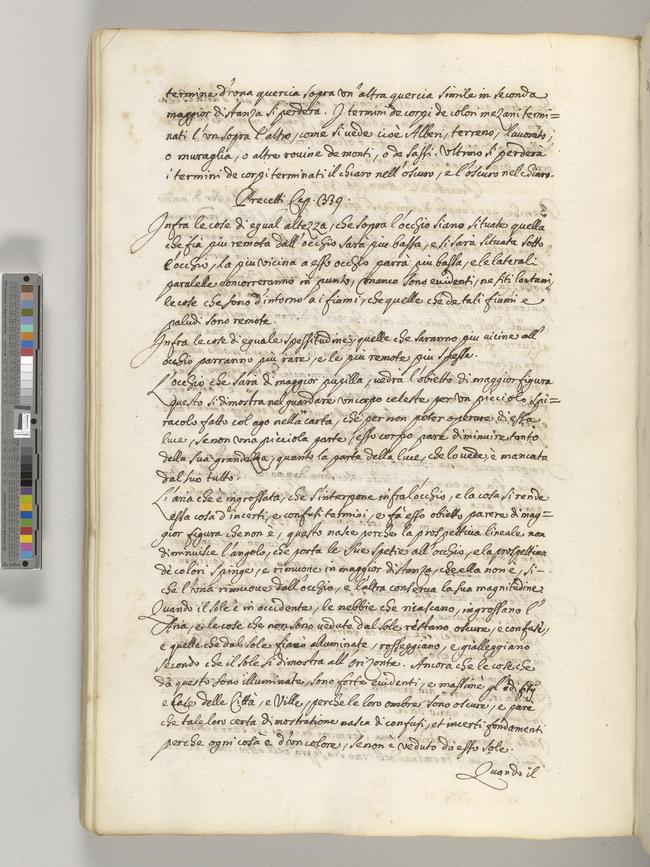 termine d'una quercia sopra un'altra quercia simile in seconda
maggior distanza si perderà. I termini de corpi de colori mezani termi=
nati l'un sopra l'altro, come si vede cioè Alberi, terreno, lavorato,
o muraglia, o altre rovine de monti, o de sassi. Ultimo si perderà
i termini de corpi terminati il chiaro nell'oscuro, e l'oscuro nel chiaro.
Precetti Cap. 339.
Infra le cose di egual altezza, che sopra l'occhio siano situate quella
che fia più remota dall'occhio sarà più bassa, e si sarà situata sotto
l'occhio, la più vicina a esso occhio parrà più bassa, e le laterali
paralelle concorreranno in punto, manco sono evidenti, ne siti lontani,
le cose che sono d'intorno a i fiumi, che quelle che de tali fiumi e
paludi sono remote.
Infra le cose di eguale spessitudine, quelle che saranno più vicine all'
occhio parranno più rare, e le più remote più spesse.
L'occhio che sarà di maggior pupilla, vedrà l'obietto di maggior figura
Questo si dimostra nel guardare un corpo celeste per un picciolo spi=
racolo fatto col ago nella carta, che per non poter operare di essa
luce, se non una picciola parte, esso corpo pare diminuire tanto
della sua grandezza, quanto la parte della luce, che lo vede, è mancata
dal suo tutto.
L'aria che è ingrossata, che s'interpone infra l'occhio, e la cosa si rende
essa cosa d'incerti, e confusi termini, e fa esso obietto parere di mag=
gior figura che non è, questo nasce perche la prospettiva lineale non
diminuisce l'angolo, che porta le sue spetie all'occhio, e la prospettiva
de colori spinge, e rimuove in maggior distanza, che ella non è, si=
che l'una rimuove dall'occhio, e l'altra conserva la sua magnitudine
Quando il sole è in occidente, le nebbie che ricascano, ingrossano l'
Aria, e le cose che non sono vedute dal sole restano oscure, e confuse,
e quelle che dal sole fiano alluminate, rosseggiano, e gialleggiano
secondo che il sole si dimostra all'orizonte. Ancora che le cose che
da questo sono illuminate, sono forte evidenti, e massime gl'edifitij
e case delle Città, e Ville, perche le loro ombre sono oscure, e pare
che tale loro certa dimostratione nasca di confusi, et incerti fondamenti
perche ogni cosa è d'un colore, se non è veduto da esso sole.
Quando il